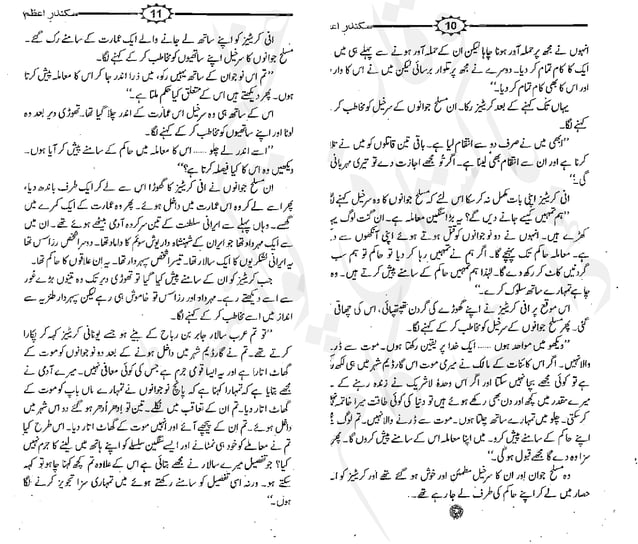 10 سکندر اعظم
انہوں نے مجھ پر حملہ آور ہونا چاہا لیکن ان کے حملہ آور ہونے سے پہلے ہی میں
ایک کا کام تمام کر دیا۔ دوسرے نے مجھ پر تلوار برسائی لیکن میں نے اس کا وار
اور اس کا بھی کام تمام کر دیا۔"
یہاں تک کہنے کے بعد کریٹیز رکا۔ ان مسلح جوانوں کے سرخیل کو مخاطب کر
کہنے لگا۔
"ابھی میں نے صرف دو سے انتقام لیا ہے۔ باقی تین قاتلوں کو میں نے تلا
کرنا ہے اور ان سے انتقام بھی لینا ہے۔ اگر تو مجھے اجازت دے تو تیری مہربانی
گی۔"
انی کریٹیز اپنی بات مکمل نہ کر سکا اس لئے کہ مسلح جوانوں کا وہ سرخیل کہنے لگا
"ہم تمہیں کیسے جانے دیں گے؟ یہ بڑا سنگین معاملہ ہے۔ ان گنت لوگ یہا
کھڑے ہیں۔ انہوں نے دو نوجوانوں کو قتل ہوتے ہوئے اپنی آنکھوں سے د
ہے۔ معاملہ حاکم تک پہنچے گا۔ اگر ہم نے تمہیں رہا کر دیا تو حاکم تو ہم سب
گردنیں کاٹ کر رکھ دے گا۔ لہٰذا ہم تمہیں حاکم کے سامنے پیش کریں گے۔ پھر وہ
چاہے تمہارے ساتھ سلوک کرے۔"
اس موقع پر انی کریٹیز نے اپنے گھوڑے کی گردن تھپتھپائی، اس کی چھاتی
گئی۔ پھر مسلح جوانوں کے سرخیل کو مخاطب کر کے کہنے لگا۔
"دیکھو میں مواحد ہوں ..... ایک خدا پر یقین رکھتا ہوں۔ میں موت سے ڈر
والا نہیں۔ اگر اس کائنات کے مالک نے میری موت اس گارڈیم شہر میں ہی لکھ رکھ
ہے تو کوئی مجھے بچا نہیں سکتا اور اگر اس وحدہٗ لا شریک نے زندہ رہنے کے
میرے مقدر میں کچھ اور دن بھی رکھے ہوئے ہیں تو دنیا کی کوئی طاقت میرا خاتمہ نہیں
کر سکتی۔ چلو میں تمہارے ساتھ چلتا ہوں۔ موت سے ڈرنے والا نہیں۔ تم لوگ مجھے
اپنے حاکم کے سامنے پیش کرو۔ میں اپنا معاملہ اس کے سامنے پیش کروں گا۔ پھر وہ
سزا وہ دے گا مجھے قبول ہو گی۔"
وہ مسلح جوان اور ان کا سرخیل مطمئن اور خوش ہو گئے تھے اور کریٹیز کو ا۔
حصار میں لے کر اپنے حاکم کی طرف لے جا رہے تھے۔
11 سکندر اعظم
انی کریٹیز کو اپنے ساتھ لے جانے والے ایک عمارت کے سامنے رک گئے۔
مسلح جوانوں کا سرخیل اپنے ساتھیوں کو مخاطب کر کے کہنے لگا۔
"تم اس نوجوان کے ساتھ یہیں رکو، میں ذرا اندر جا کر اس کا معاملہ پیش کرتا
ہوں۔ پھر دیکھتے ہیں اس کے متعلق کیا حکم ملتا ہے۔"
اس کے ساتھ ہی وہ سرخیل اس عمارت کے اندر چلا گیا تھا۔ تھوڑی دیر بعد وہ
لوٹا اور اپنے ساتھیوں کو مخاطب کر کے کہنے لگا۔
"اسے اندر لے چلو ..... اس کا معاملہ میں حاکم کے سامنے پیش کر آیا ہوں۔
دیکھیں وہ اس کا کیا فیصلہ کرتا ہے؟"
ان مسلح جوانوں نے انی کریٹیز کا گھوڑا اس سے لے کر ایک طرف باندھ دیا،
پھر اسے لے کر وہ اس عمارت میں داخل ہوئے۔ پھر وہ عمارت کے ایک کمرے میں
گھسے۔ وہاں پہلے سے ایرانی سلطنت کے تین سرکردہ آدمی بیٹھے ہوئے تھے۔ ان میں
سے ایک مہرداد تھا جو ایران کے شہنشاہ داریوش سوئم کا داماد تھا۔ دوسرا شخص رزاسس تھا
یہ ایرانی لشکریوں کا ایک سالار تھا۔ تیسرا شخص سپہردار تھا۔ یہ ان علاقوں کا حاکم تھا۔
جب کریٹیز کو ان کے سامنے پیش کیا گیا تو تھوڑی دیر تک وہ تینوں بڑے غور
سے اسے دیکھتے رہے۔ مہرداد اور رزاسس تو خاموش ہی رہے لیکن سپہردار طنزیہ سے
انداز میں اسے مخاطب کر کے کہنے لگا۔
"تو تم عرب سالار جابر بن رباح کے بیٹے ہو جسے یونانی کریٹیز کہہ کر پکارا
کرتے تھے۔ تم نے گارڈیم شہر میں داخل ہونے کے بعد دو نوجوانوں کو موت کے
گھاٹ اتارا ہے۔ یہ ایسا قومی جرم ہے جس کی کوئی معافی نہیں۔ میرے آدمی نے
مجھے بتایا ہے کہ تمہارا کہنا ہے کہ پانچ نوجوانوں نے تمہارے ماں باپ کو موت کے
گھاٹ اتار دیا۔ تم ان کے تعاقب میں نکلے۔ تین تو اِدھر اُدھر ہو گئے دو اس شہر میں
داخل ہوئے۔ تم ان کے پیچھے آئے اور انہیں موت کے گھاٹ اتار دیا۔ اس طرح کیا
تم نے معاملے کو خود ہی نمٹانے اور ایسے سنگین سلسلے کو اپنے ہاتھ میں لینے کا جرم نہیں
کیا؟ جو تفصیل میرے سالار نے مجھے بتائی ہے اس کے علاوہ تم کچھ کہنا چاہو تو کہہ
سکتے ہو۔ ورنہ اسی تفصیل کو سامنے رکھتے ہوئے میں تمہاری سزا تجویز کرنے لگا
ہوں۔"